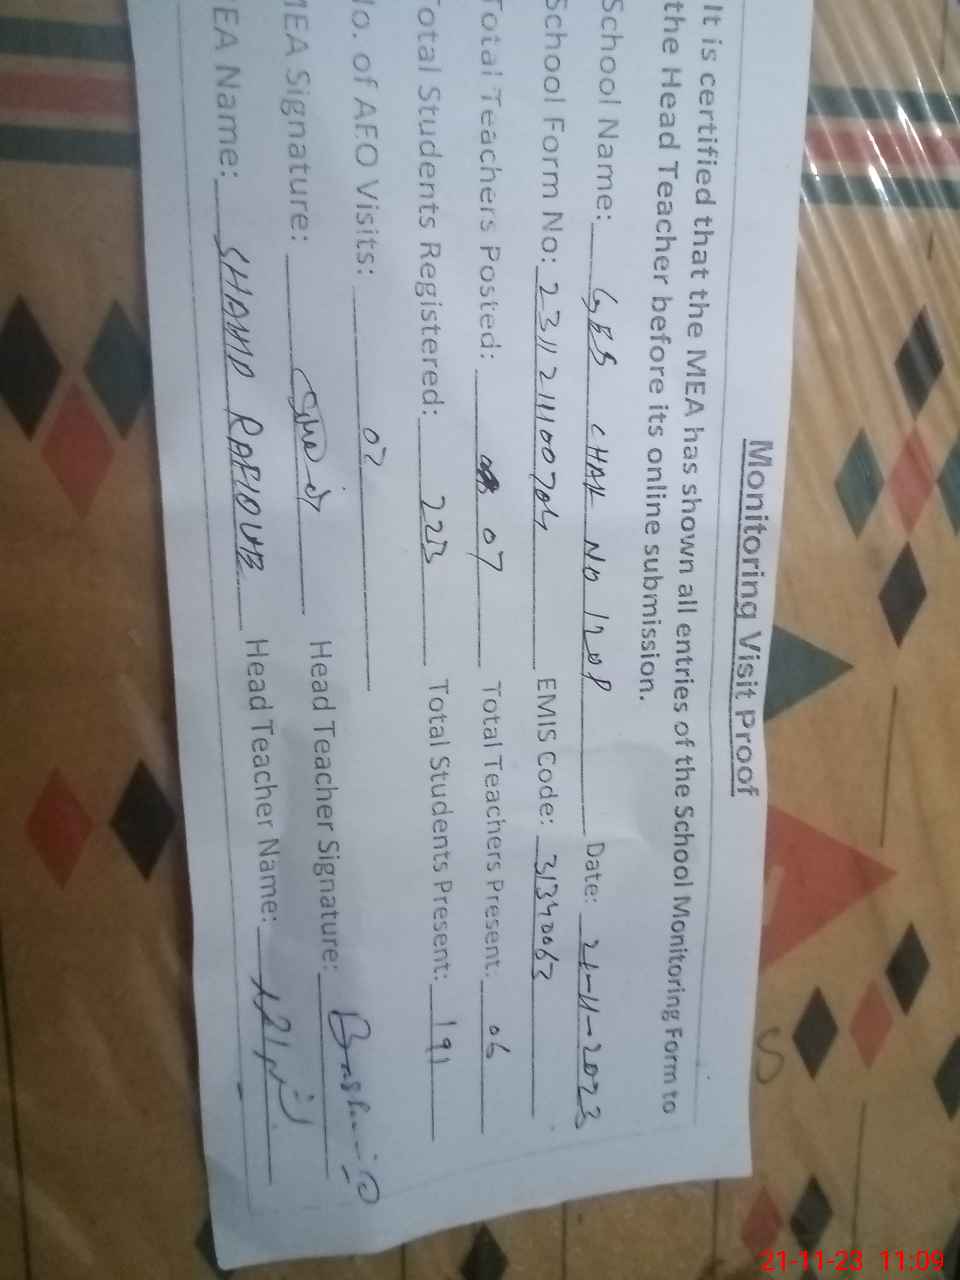 Monitoring Visit Proof
It is certified that the MEA has shown all entries of the School Monitoring Form to
the Head Teacher before its online submission.
School Name: GES CHAK NO 120P Date: 21-11-2023
School Form No: 2311211100704 EMIS Code: 31340062
Total Teachers Posted: 07 Total Teachers Present: 06
Total Students Registered: 223 Total Students Present: 191
No. of AEO Visits: 02
MEA Signature: Head Teacher Signature:
MEA Name: Head Teacher Name:
S
21-11-23 11:09